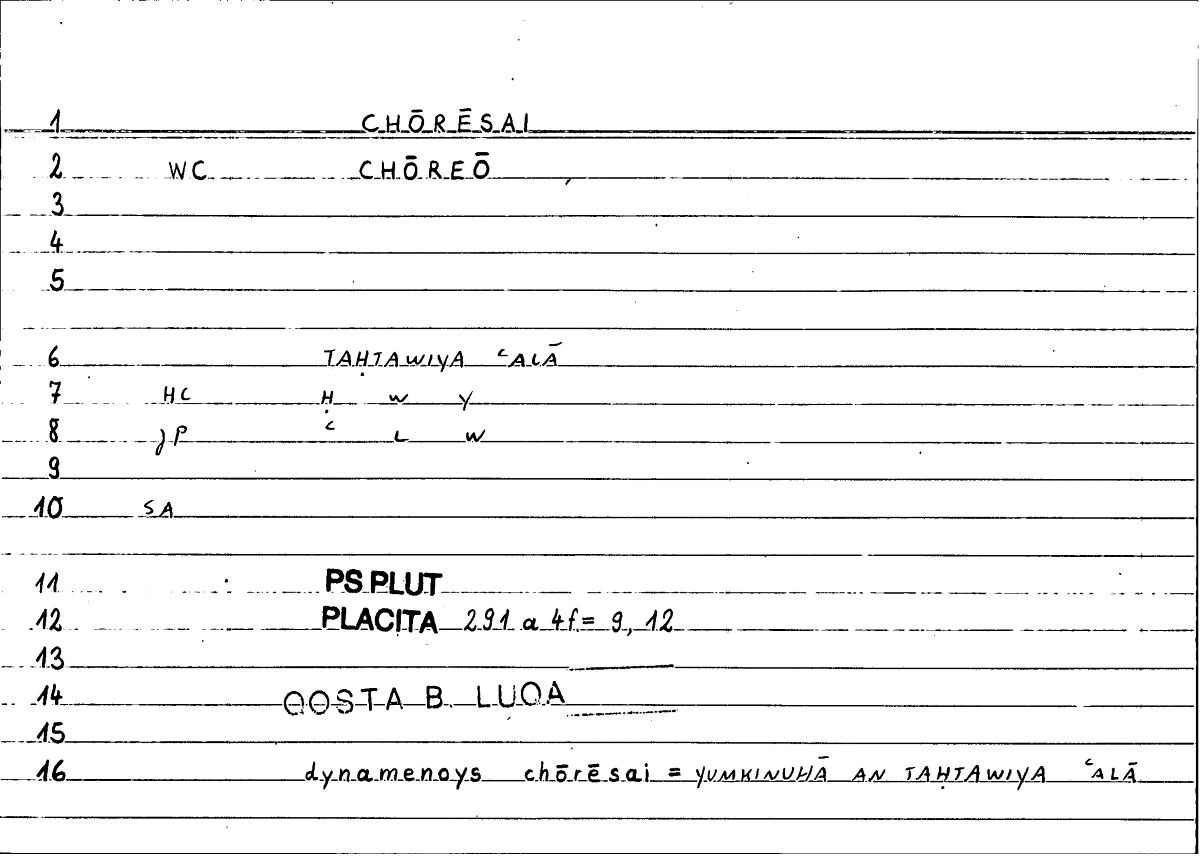 1 CHŌRĒSAI
2 WC CHŌREŌ
3
4
5
6 TAḤTAWIYA ʿALĀ
7 HC Ḥ W Y
8 JP ʿ L W
9
10 SA
11 PS.PLUT
12 PLACITA 291 a 4f = 9, 12
13
14 QOSTA B. LUQA
15
16 dynamenoys chōrēsai = YUMKINUHĀ AN TAḤTAWIYA ʿALĀ